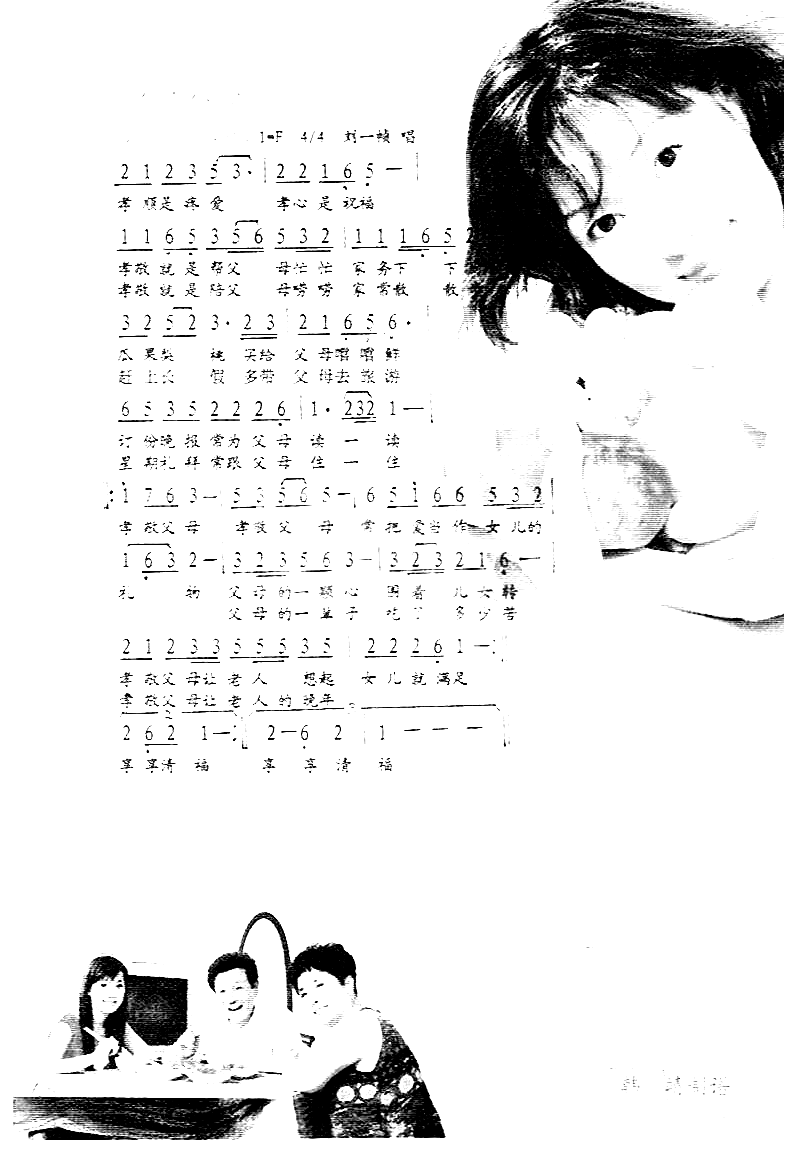 1=F 4/4 刘一祯 唱
2 1 2 3 5 3· | 2 2 1 6 5 — |
孝顺是疼爱 孝心是祝福
1 1 6 5 3 5 6 5 3 2 | 1 1 1 6 5 2
孝敬就是帮父 母忙忙 家务下 下
孝敬就是陪父 母唠唠 家常散 散
3 2 5 2 3· 2 3 | 2 1 6 5 6·
瓜果梨 桃 买给 父母嚐嚐鲜
赶上长 假 多带 父母去旅游
6 5 3 5 2 2 2 6 | 1· 2 3 2 1 — |
订份晚报常为父母 读一 读
星期礼拜常跟父母 住一 住
1 7 6 3 — | 5 3 5 6 5 — | 6 5 1 6 6 5 3 2
孝敬父母 孝敬父 母 常把爱当作女儿的
1 6 3 2 — | 3 2 3 5 6 3 — | 3 2 3 2 1 6 — |
礼 物 父母的一颗心 围着 儿女转
父母的一辈子 吃了 多少苦
2 1 2 3 3 5 5 5 3 5 | 2 2 2 6 1 — :
孝敬父母让老人 想起 女儿就满足
孝敬父母让老人的晚年
2 6 2 1 — : 2 — 6 2 | 1 — — — |
享享清 福 享 享 清 福